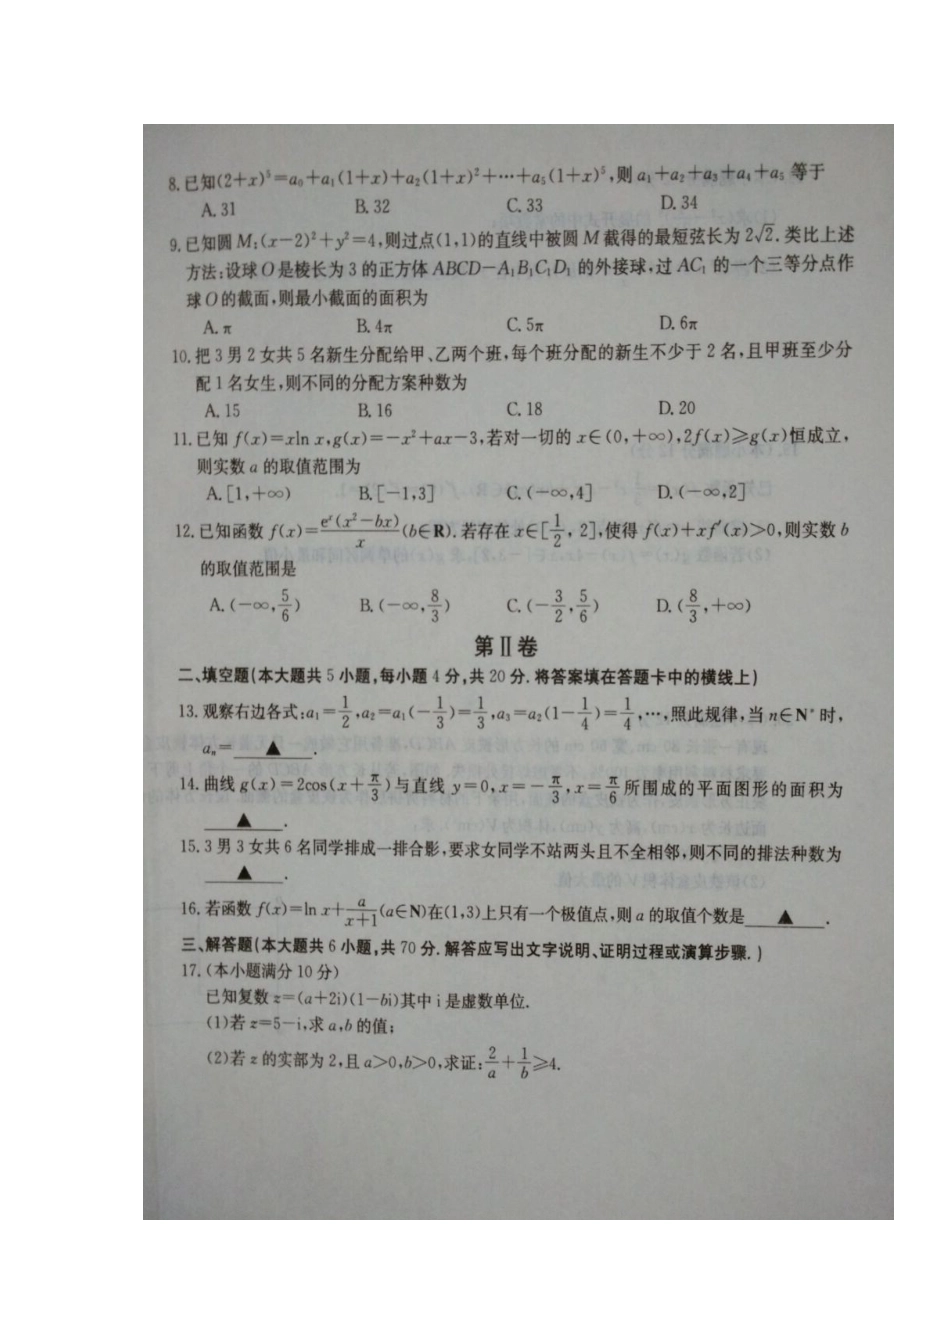 8.已知(2+x)⁵=a₀+a₁(1+x)+a₂(1+x)²+…+a₅(1+x)⁵,则 a₁+a₂+a₃+a₄+a₅ 等于
A.31 B.32 C.33 D.34
9.已知圆 M:(x-2)²+y²=4,则过点(1,1)的直线中被圆 M 截得的最短弦长为 2√2.类比上述
方法:设球 O 是棱长为 3 的正方体 ABCD-A₁B₁C₁D₁ 的外接球,过 AC₁ 的一个三等分点作
球 O 的截面,则最小截面的面积为
A.π B.4π C.5π D.6π
10.把 3 男 2 女共 5 名新生分配给甲、乙两个班,每个班分配的新生不少于 2 名,且甲班至少分
配 1 名女生,则不同的分配方案种数为
A.15 B.16 C.18 D.20
11.已知 f(x)=xln x,g(x)=-x²+ax-3,若对一切的 x∈(0,+∞),2f(x)≥g(x)恒成立,
则实数 a 的取值范围为
A.[1,+∞) B.[-1,3] C.(-∞,4] D.(-∞,2]
12.已知函数 f(x)=eˣ(x²-bx)/x(b∈R).若存在 x∈[1/2,2],使得 f(x)+xf′(x)>0,则实数 b
的取值范围是
A.(-∞,5/6) B.(-∞,8/3) C.(-3/2,5/6) D.(8/3,+∞)
第Ⅱ卷
二、填空题(本大题共 5 小题,每小题 4 分,共 20 分.将答案填在答题卡中的横线上)
13.观察右边各式:a₁=1/2,a₂=a₁(-1/3)=1/3,a₃=a₂(1-1/4)=1/4,…,照此规律,当 n∈N*时,
aₙ=▲.
14.曲线 g(x)=2cos(x+π/3)与直线 y=0,x=-π/3,x=π/6 所围成的平面图形的面积为
▲.
15.3 男 3 女共 6 名同学排成一排合影,要求女同学不站两头且不全相邻,则不同的排法种数为
▲.
16.若函数 f(x)=ln x+a/(x+1)(a∈N)在(1,3)上只有一个极值点,则 a 的取值个数是▲.
三、解答题(本大题共 6 小题,共 70 分.解答应写出文字说明、证明过程或演算步骤.)
17.(本小题满分 10 分)
已知复数 z=(a+2i)(1-bi)其中 i 是虚数单位.
(1)若 z=5-i,求 a,b 的值;
(2)若 z 的实部为 2,且 a>0,b>0,求证:2/a+1/b≥4.